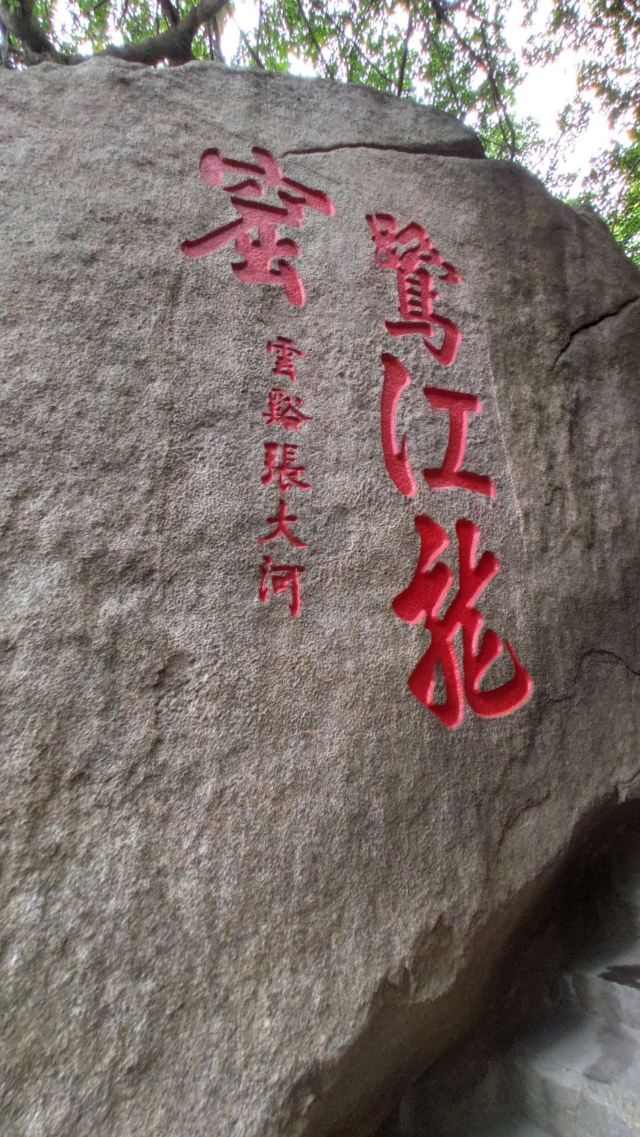 鷺江龙
窟
雲谿張大河